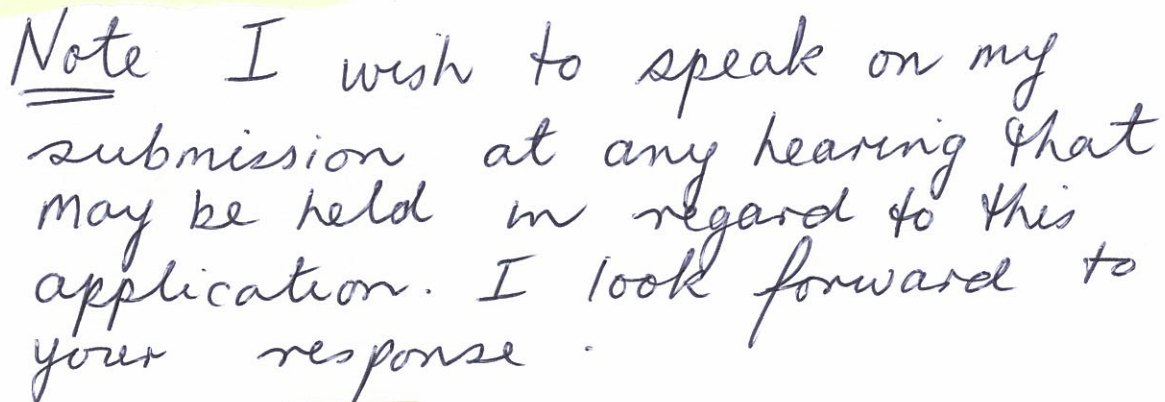 Note I wish to speak on my
submission at any hearing that
may be held in regard to this
application. I look forward to
your response.